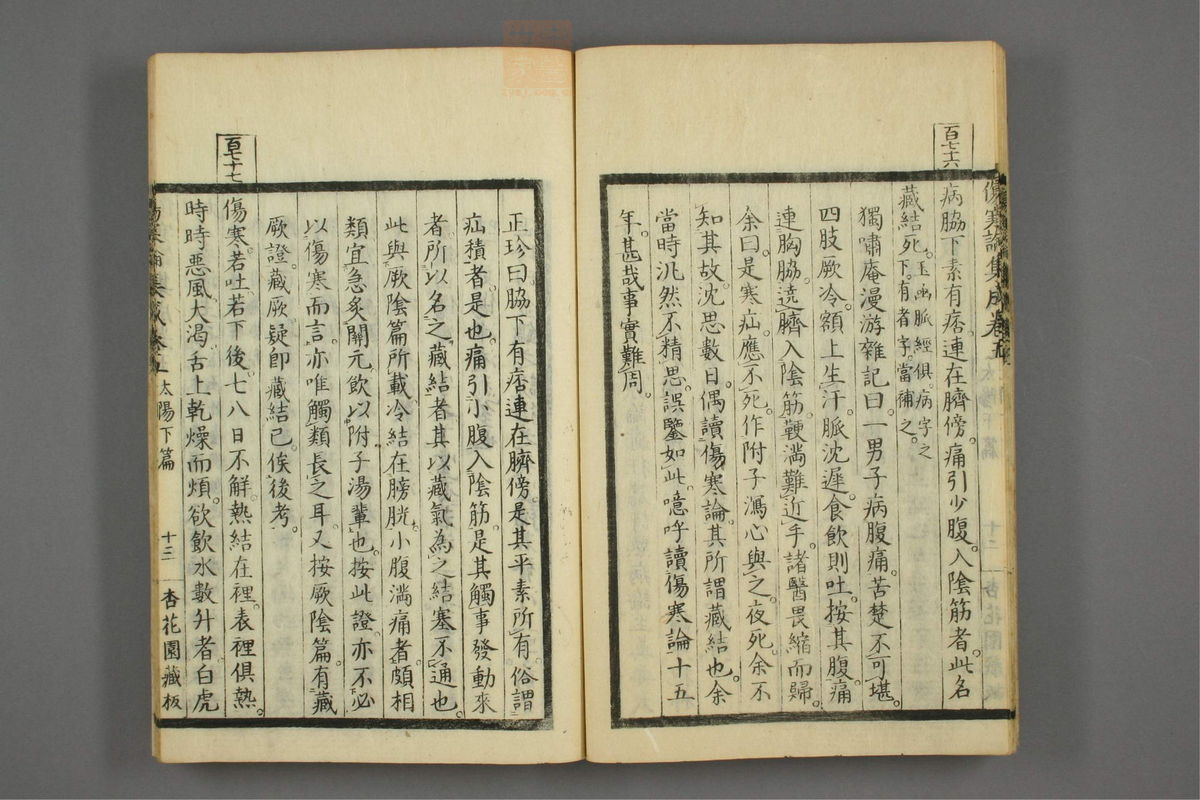 百七十六
傷寒論集成卷五
病脇下素有痞。連在臍傍。痛引少腹。入陰筋者。此名
藏結死。玉函脈經俱。病字之
下。有者字。當補之。
獨嘯庵漫游雜記曰。一男子病腹痛。苦楚不可堪。
四肢厥冷。額上生汗。脈沈遲。食飲則吐。按其腹。痛
連胸脇。遶臍入陰筋。鞕滿難近手。諸醫畏縮而歸。
余曰。是寒疝。應不死。作附子瀉心與之。夜死。余不
知其故。沈思數日。偶讀傷寒論。其所謂藏結也。余
當時汎然不精思。誤鑒如此。噫呼讀傷寒論十五
年。甚哉事實難周。
正珍曰。脇下有痞。連在臍傍。是其平素所有。俗謂
疝積者。是也。痛引小腹。入陰筋。是其觸事發動來
者。所以名之藏結者。其以藏氣為之結塞不通也。
此與厥陰篇所載冷結在膀胱。小腹滿痛者。頗相
類。宜急炙關元。飲以附子湯輩也。按此證亦不必
以傷寒而言。亦唯觸類長之耳。又按厥陰篇。有藏
厥證。藏厥疑卽藏結已。俟後考。
百七十七
傷寒。若吐若下後。七八日不解。熱結在裡。表裡俱熱。
時時惡風大渴。舌上乾燥而煩。欲飲水數升者。白虎
太陽下篇
十三
杏花園藏板